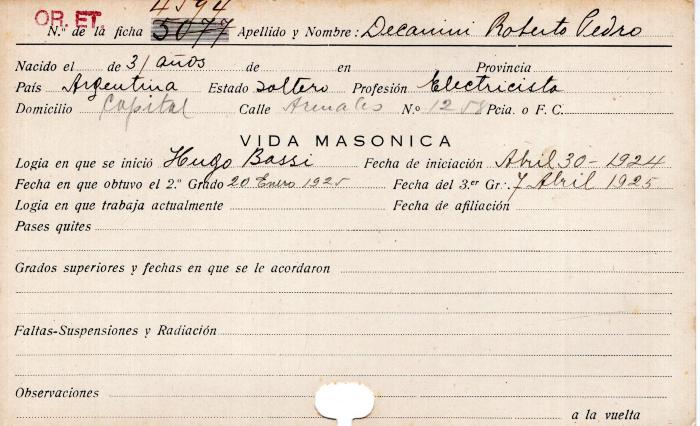 OR. ET. 4594
N.º de la ficha 5077 Apellido y Nombre: Decanini Roberto Pedro
Nacido el de 31 años de en Provincia
País Argentina Estado soltero Profesión Electricista
Domicilio Capital Calle Arenales N.º 1258 Pcia. o F. C.
VIDA MASONICA
Logia en que se inició Hugo Bassi Fecha de iniciación Abril 30-1924
Fecha en que obtuvo el 2.º Grado 20 Enero 1925 Fecha del 3.er Gr∴ 7 Abril 1925
Logia en que trabaja actualmente Fecha de afiliación
Pases quites
Grados superiores y fechas en que se le acordaron
Faltas-Suspensiones y Radiación
Observaciones
a la vuelta